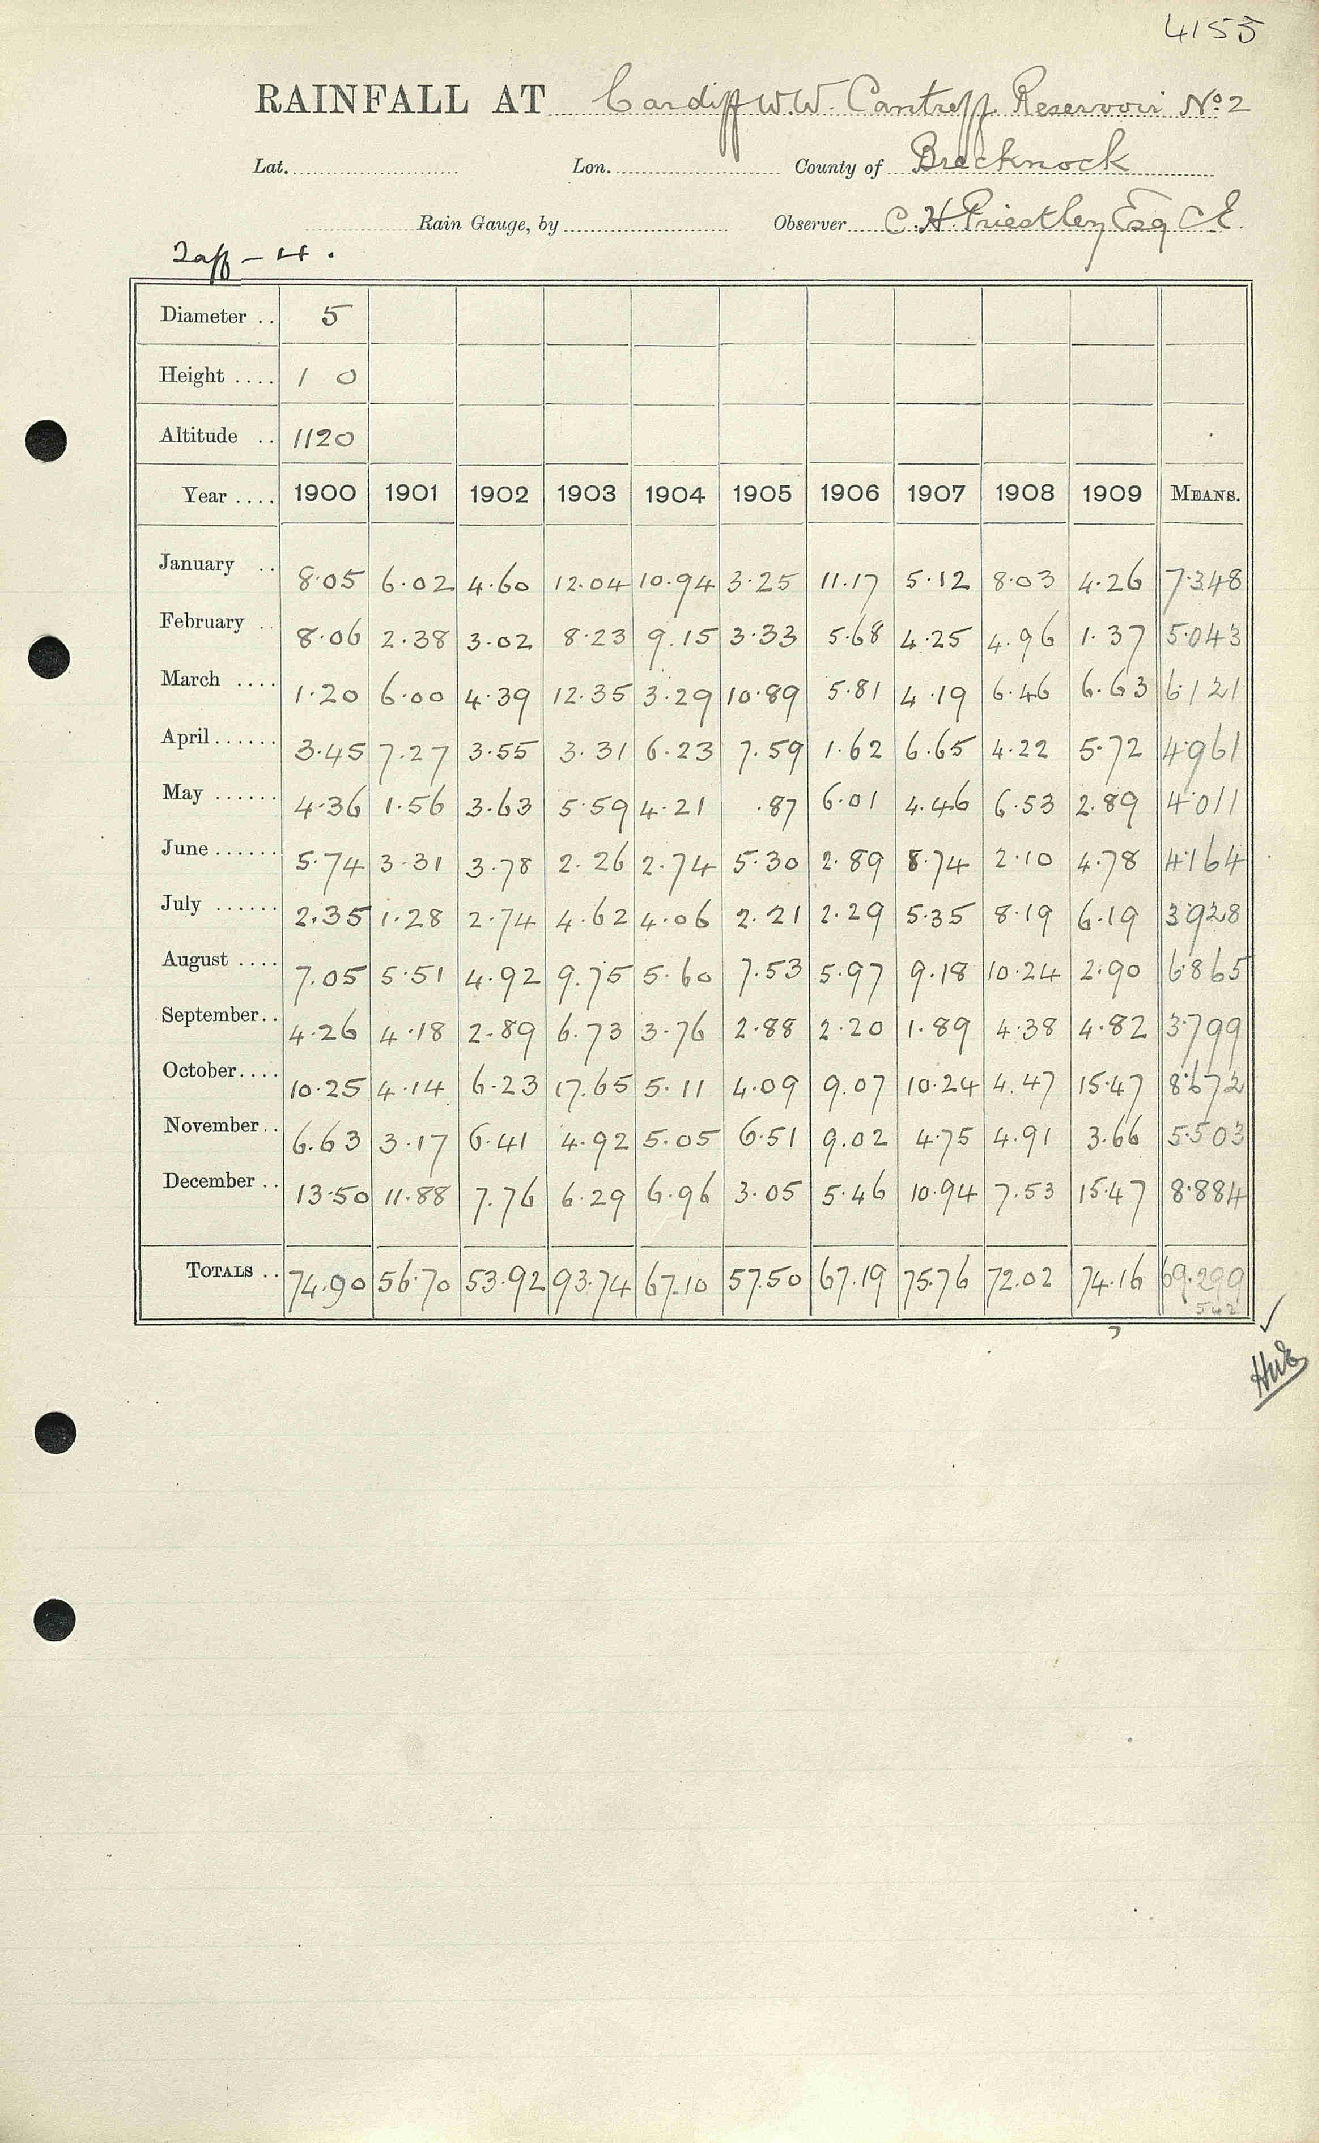 4155
RAINFALL AT Cardiff W.W. Cantreff Reservoir No. 2
Lat. Lon. County of Brecknock
Rain Gauge, by Observer C. H. Priestley Esq C E.
Taff - 4.
Diameter .. 5
Height .... 1 0
Altitude .. 1120
Year .... 1900 1901 1902 1903 1904 1905 1906 1907 1908 1909 MEANS.
January .. 8.05 6.02 4.60 12.04 10.94 3.25 11.17 5.12 8.03 4.26 7.348
February .. 8.06 2.38 3.02 8.23 9.15 3.33 5.68 4.25 4.96 1.37 5.043
March .... 1.20 6.00 4.39 12.35 3.29 10.89 5.81 4.19 6.46 6.63 6.121
April...... 3.45 7.27 3.55 3.31 6.23 7.59 1.62 6.65 4.22 5.72 4.961
May ...... 4.36 1.56 3.63 5.59 4.21 .87 6.01 4.46 6.53 2.89 4.011
June...... 5.74 3.31 3.78 2.26 2.74 5.30 2.89 8.74 2.10 4.78 4.164
July ...... 2.35 1.28 2.74 4.62 4.06 2.21 2.29 5.35 8.19 6.19 3.928
August .... 7.05 5.51 4.92 9.75 5.60 7.53 5.97 9.18 10.24 2.90 6.865
September.. 4.26 4.18 2.89 6.73 3.76 2.88 2.20 1.89 4.38 4.82 3.799
October.... 10.25 4.14 6.23 17.65 5.11 4.09 9.07 10.24 4.47 15.47 8.672
November.. 6.63 3.17 6.41 4.92 5.05 6.51 9.02 4.75 4.91 3.66 5.503
December .. 13.50 11.88 7.76 6.29 6.96 3.05 5.46 10.94 7.53 15.47 8.884
TOTALS .. 74.90 56.70 53.92 93.74 67.10 57.50 67.19 75.76 72.02 74.16 69.299
542